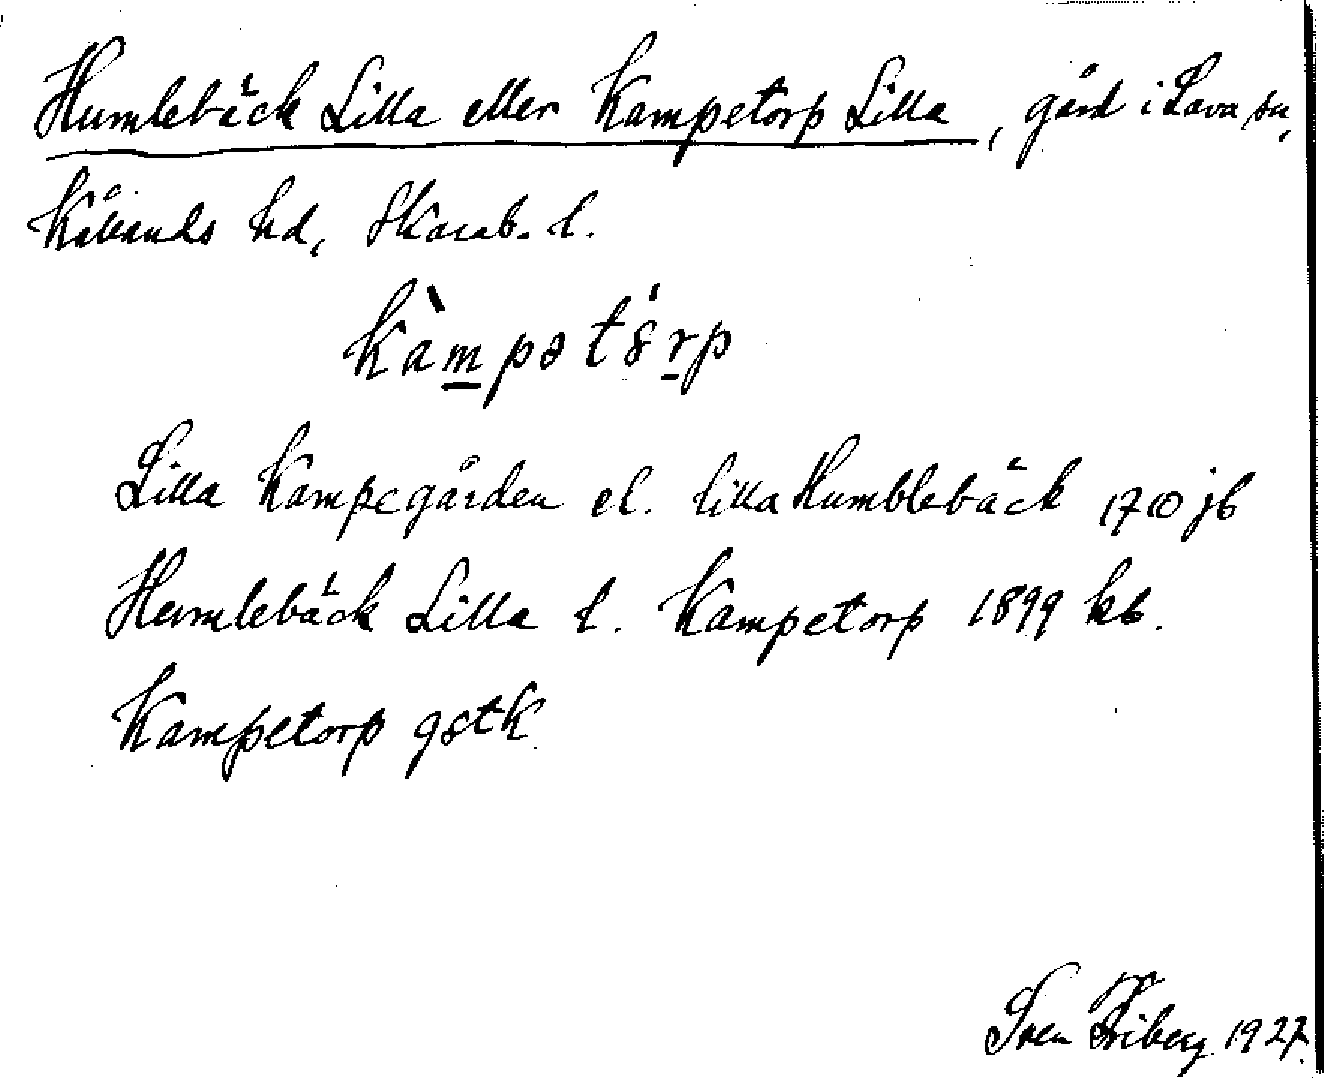 Humlebäck Lilla eller Kampetorp Lilla, gård i Lava sn,
Kållands hd, Skarab. l.
kàmpətɤ́rp
Lilla Kampegården el. lilla Humblebäck 1710 jb
Humlebäck Lilla l. Kampetorp 1899 kb.
Kampetorp gstk
Sven Friberg 1927.